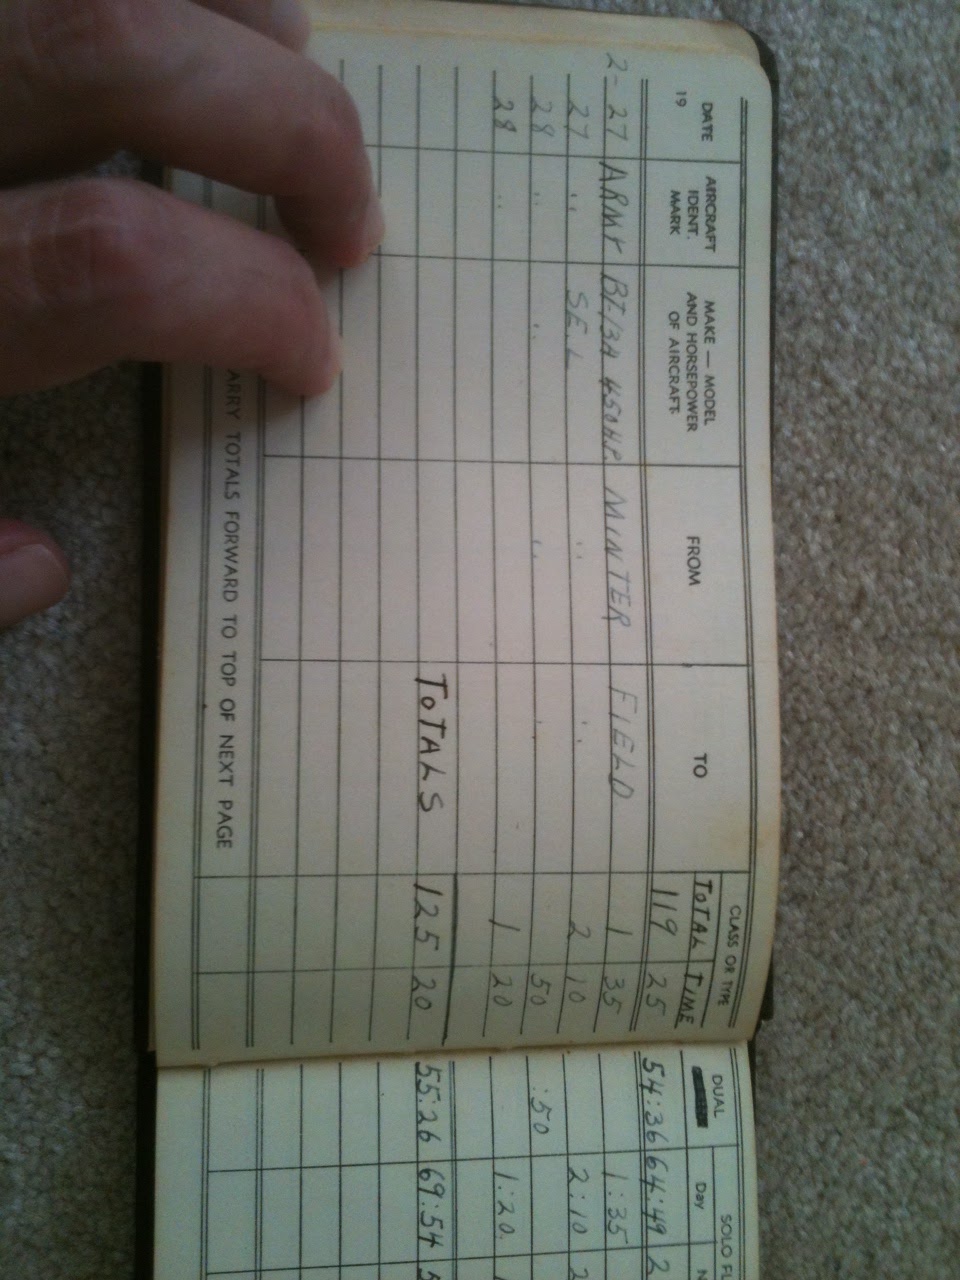 DATE 19 AIRCRAFT IDENT. MARK MAKE — MODEL AND HORSEPOWER OF AIRCRAFT FROM TO CLASS OR TYPE TOTAL TIME DUAL SOLO Day
119 25 54:36 64:49 2
2-27 ARMY BT-13A 450H.P. MINTER FIELD 1 35 1:35
27 " S.E.L " " 2 10 2:10 2
28 " " " 50 :50
28 " 1 20 1:20
TOTALS 125 20 55:26 69:54 5
ARRY TOTALS FORWARD TO TOP OF NEXT PAGE